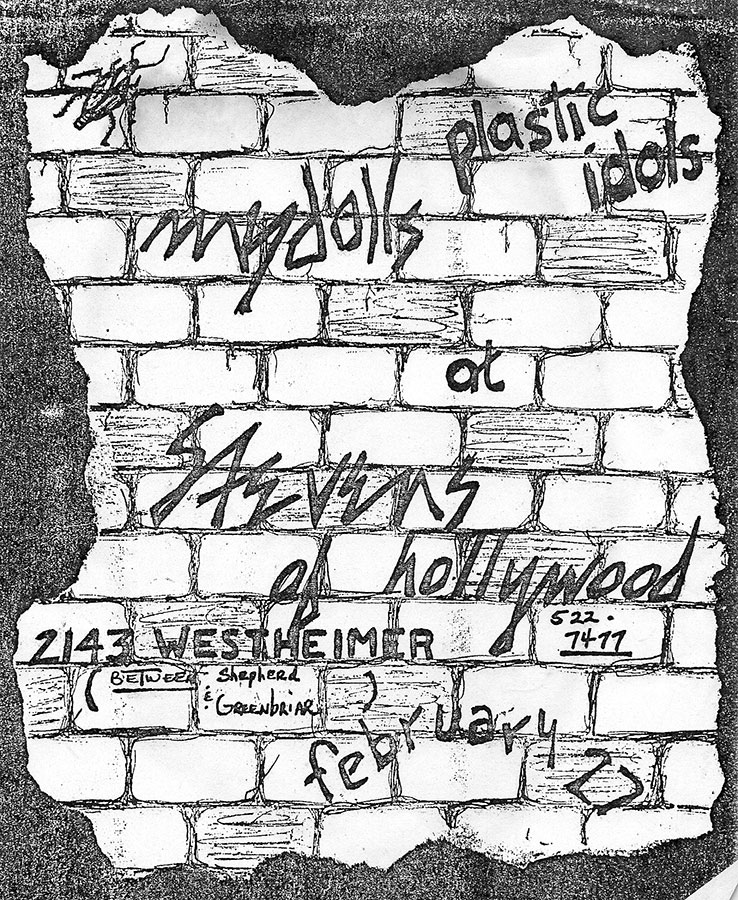 plastic
idols
mydolls
at
Stevens
of hollywood
2143 WESTHEIMER
522-
7477
(BETWEEN Shepherd
& GREENBRIAR)
february